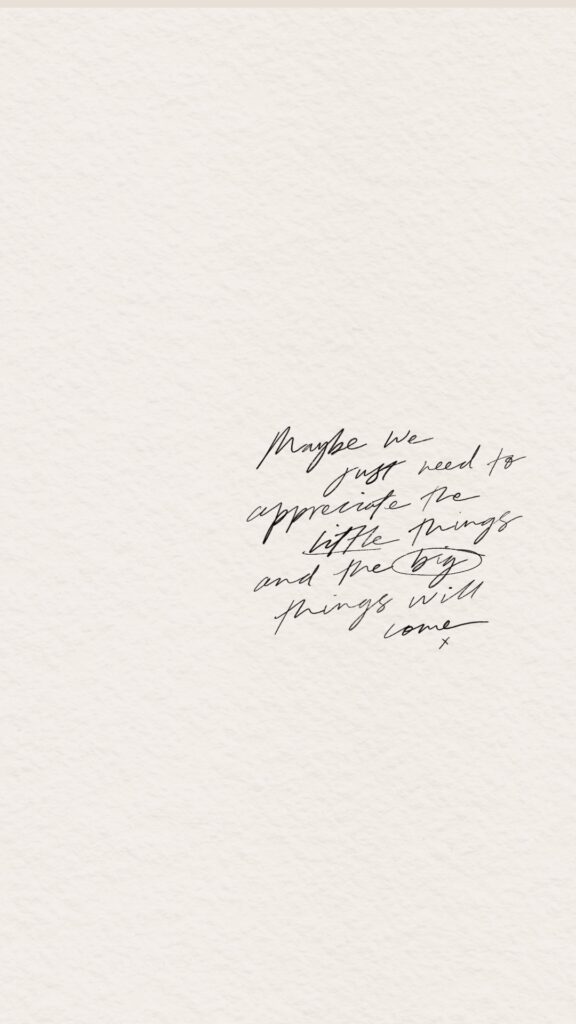 Maybe we
just need to
appreciate the
little things
and the big
things will
come
x